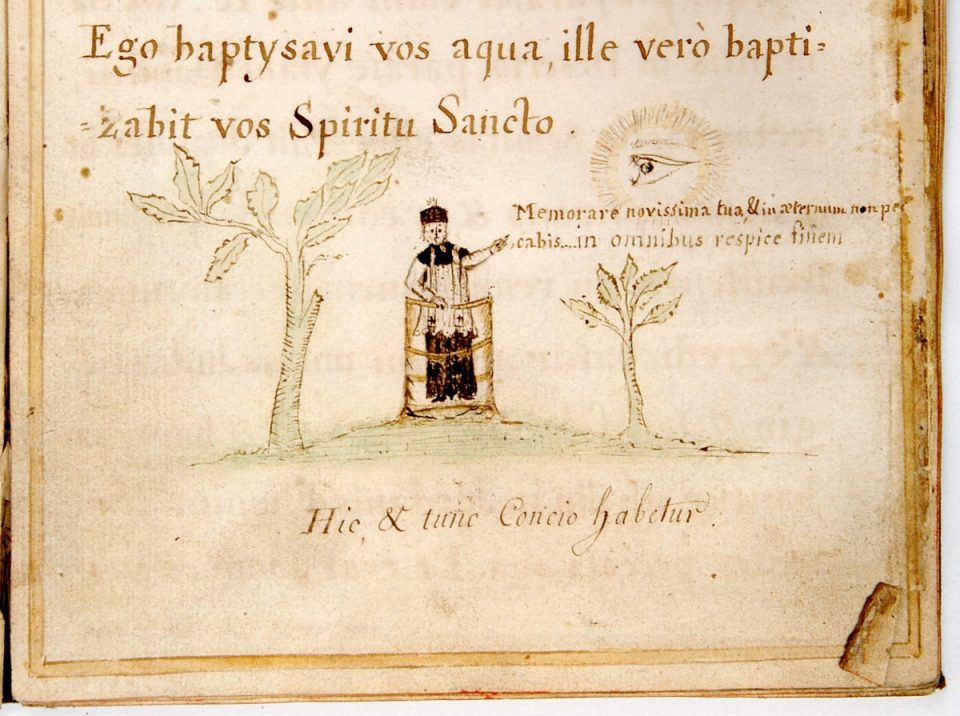 Ego baptysavi vos aqua, ille verò bapti=
=zabit vos Spiritu Sancto.
Memorare novissima tua, & in æternum non pec
cabis... in omnibus respice finem
Hic, & tunc Concio habetur.